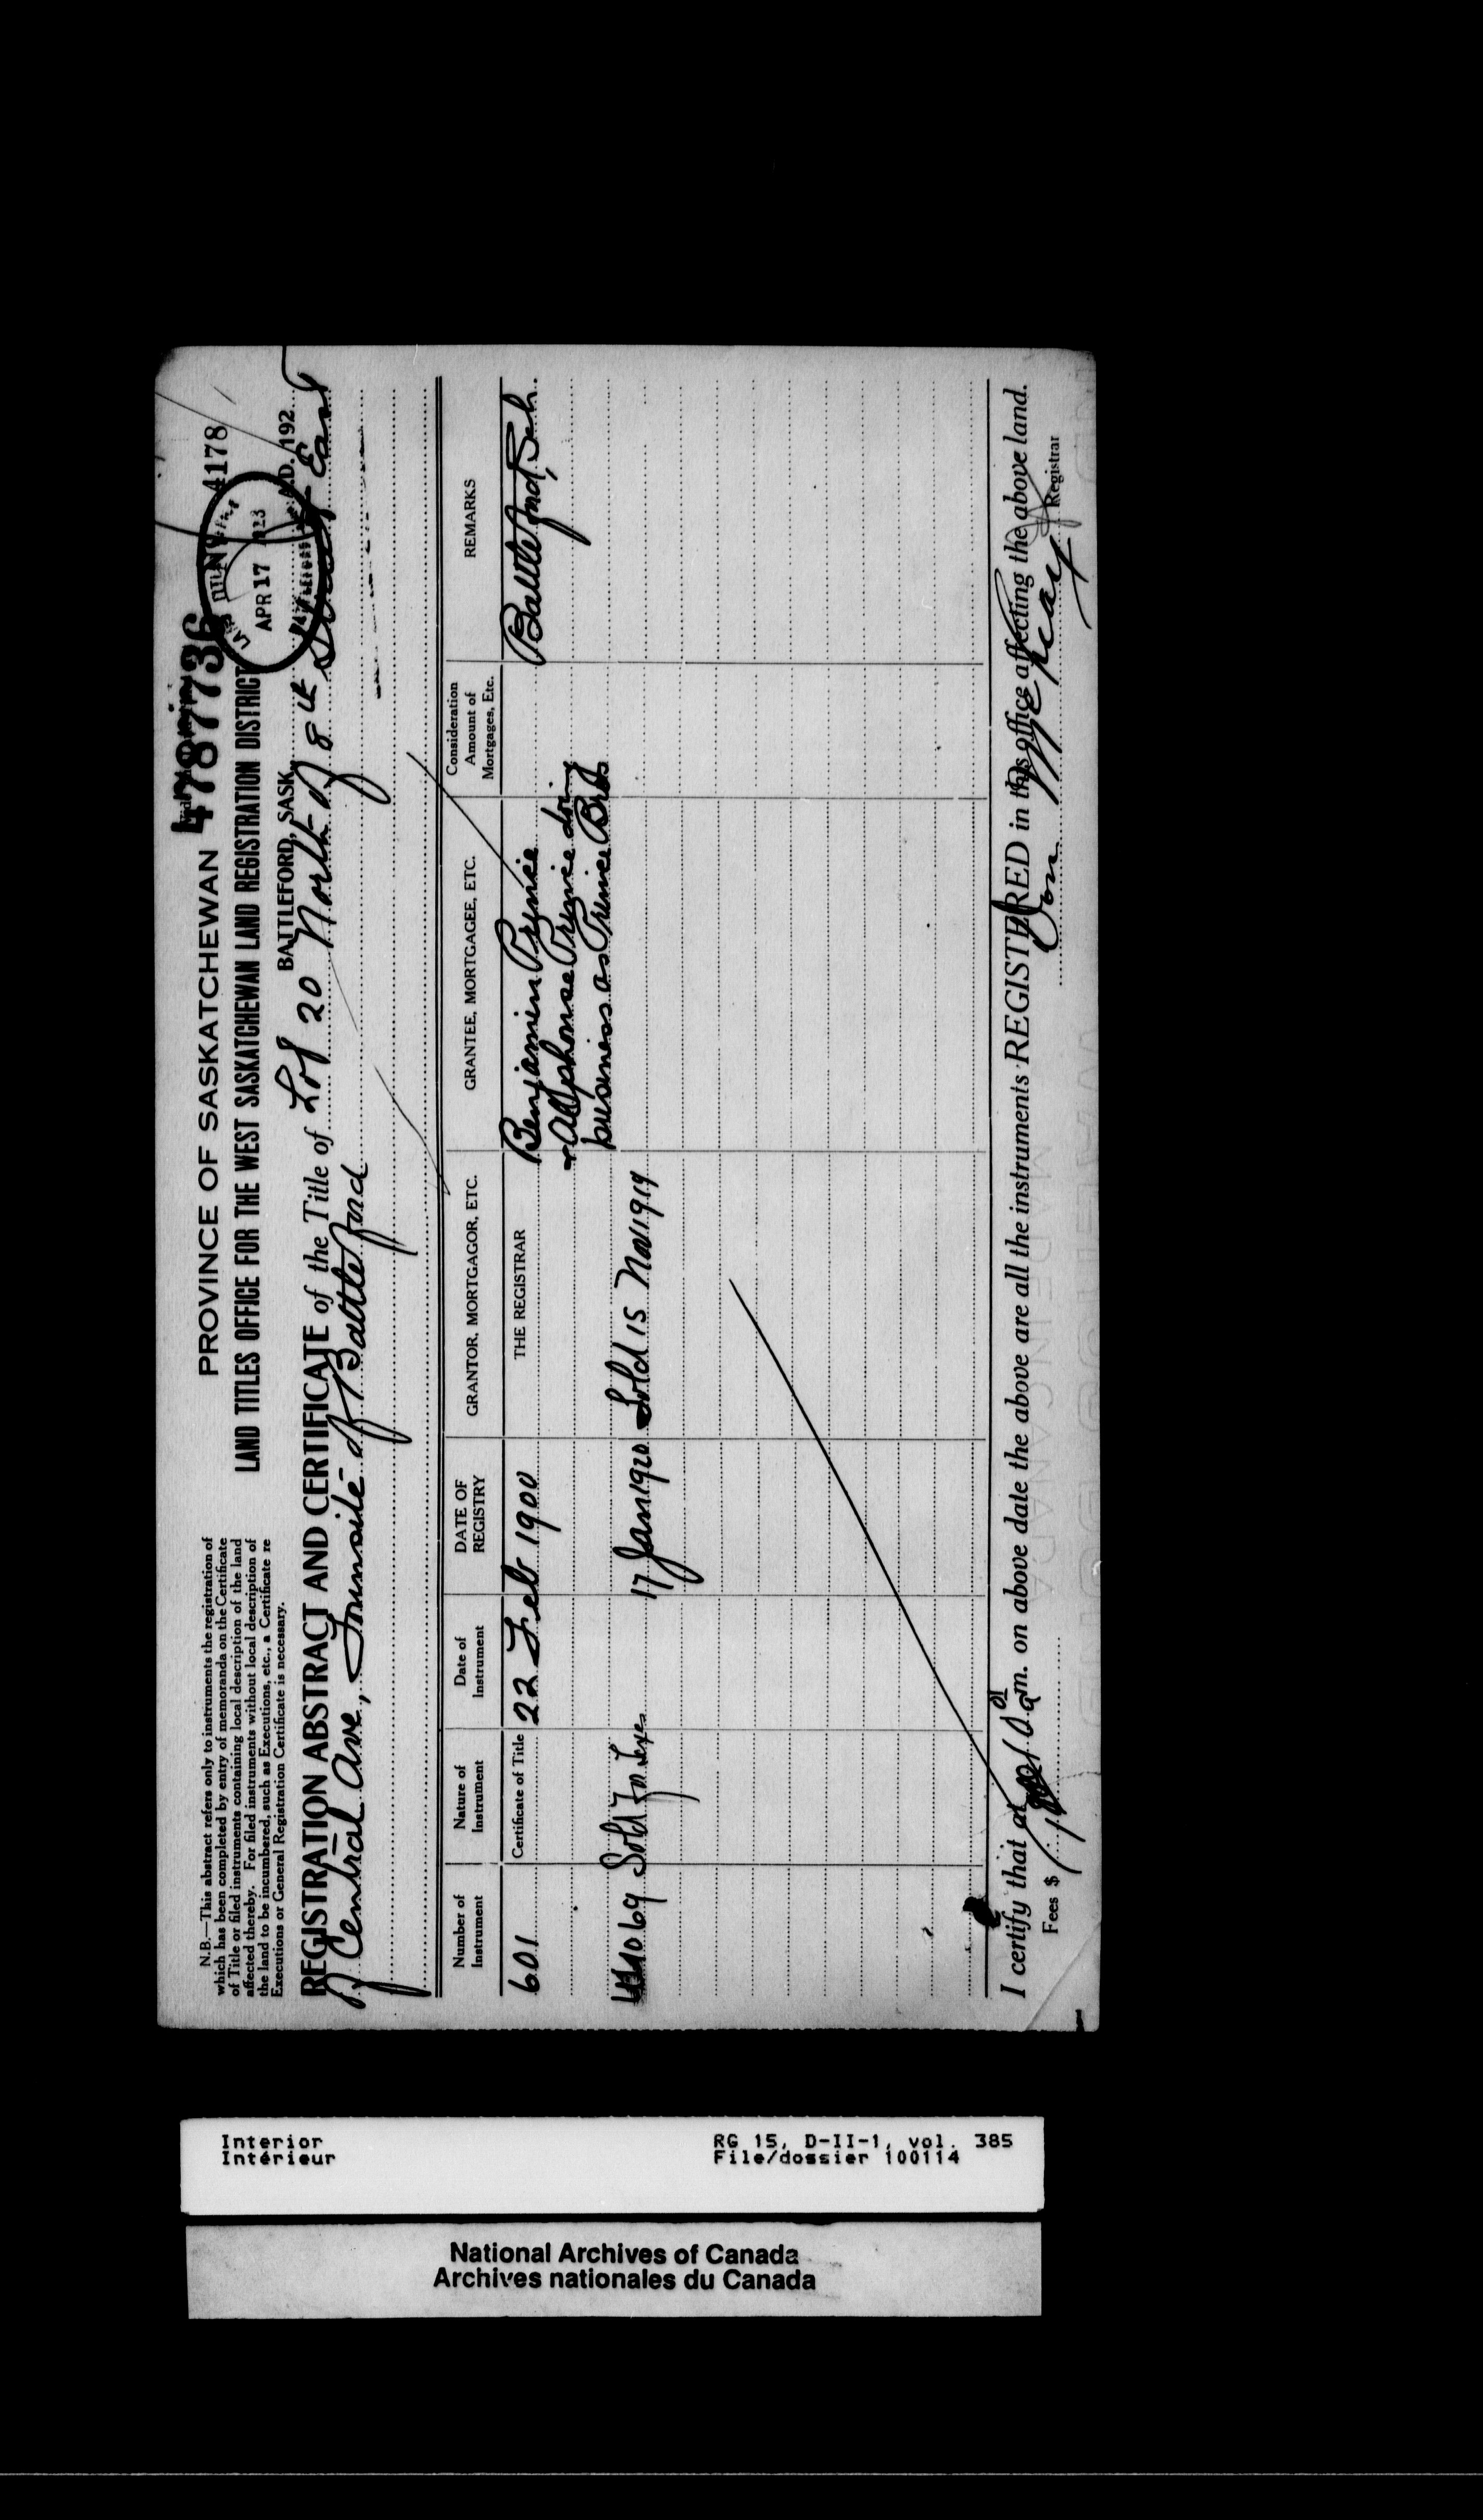 N.B.—This abstract refers only to instruments the registration of
which has been completed by entry of memoranda on the Certificate
of Title or filed instruments containing local description of the land
affected thereby. For filed instruments without local description of
the land to be incumbered, such as Executions, etc., a Certificate re
Executions or General Registration Certificate is necessary.
4787736
PROVINCE OF SASKATCHEWAN
4178
LAND TITLES OFFICE FOR THE WEST SASKATCHEWAN LAND REGISTRATION DISTRICT
APR 17
BATTLEFORD, SASK. A.D. 192
REGISTRATION ABSTRACT AND CERTIFICATE of the Title of Lot 20 North of 8th Street East
of Central Ave, Townsite of Battleford
Number of Instrument
Nature of Instrument
Date of Instrument
DATE OF REGISTRY
GRANTOR, MORTGAGOR, ETC.
GRANTEE, MORTGAGEE, ETC.
Consideration Amount of Mortgages, Etc.
REMARKS
601 Certificate of Title 22 Feb 1900 THE REGISTRAR Benjamin Prince Battleford, Sask.
+ Alphonse Prince doing
business as Prince Bros
69 Sold for Taxes 17 Jan 1920 Sold 15 Nov 1919
I certify that at m. on above date the above are all the instruments REGISTERED in this office affecting the above land.
Fees $ Registrar
Interior
Intérieur
RG 15, D-II-1, vol. 385
File/dossier 100114
National Archives of Canada
Archives nationales du Canada